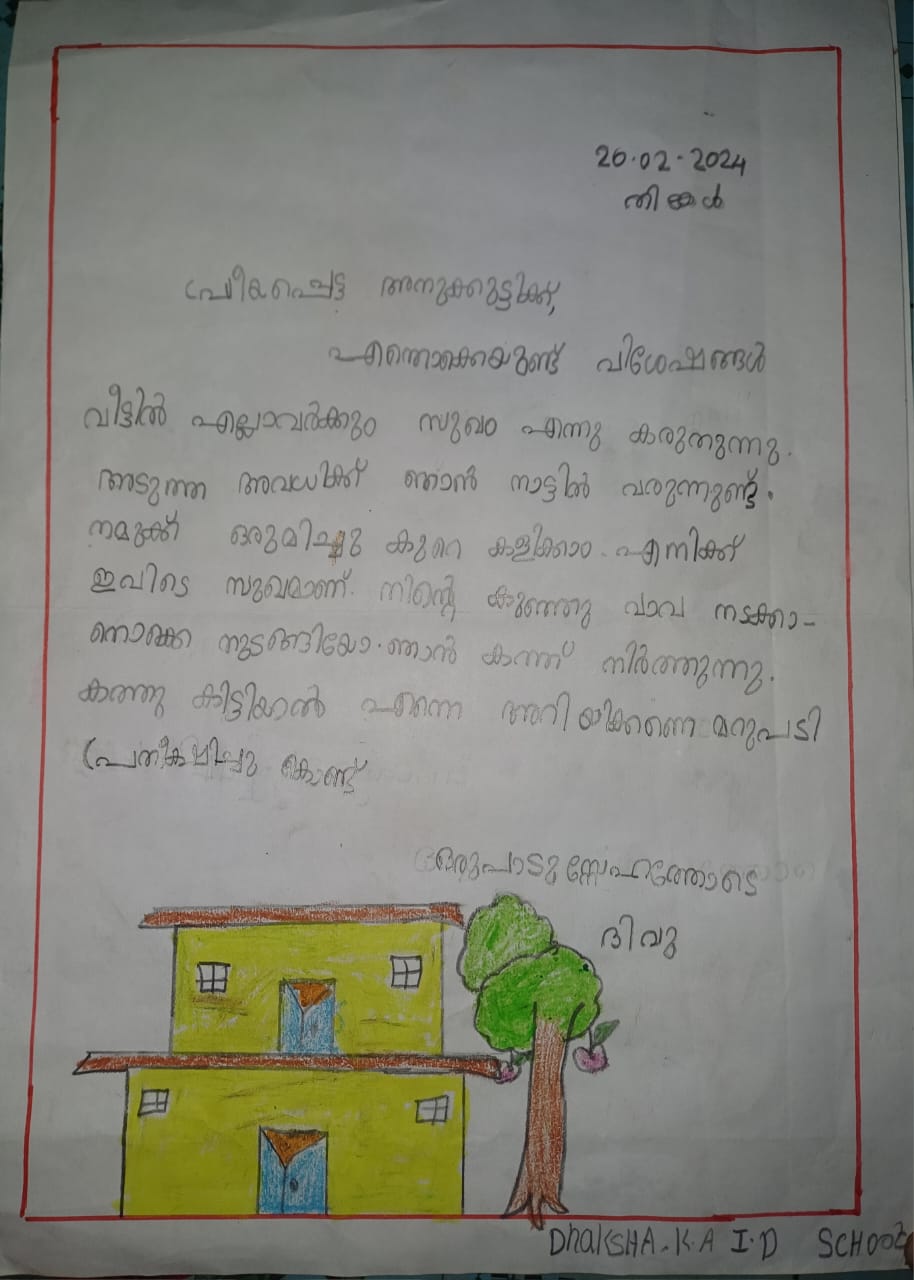 26.02.2024
തിങ്കൾ
പ്രിയപ്പെട്ട അനുക്കുട്ടിക്ക്,
എന്തൊക്കെയുണ്ട് വിശേഷങ്ങൾ
വീട്ടിൽ എല്ലാവർക്കും സുഖം എന്നു കരുതുന്നു.
അടുത്ത അവധിക്ക് ഞാൻ നാട്ടിൽ വരുന്നുണ്ട്.
നമുക്ക് ഒരുമിച്ചു കുറെ കളിക്കാം. എനിക്ക്
ഇവിടെ സുഖമാണ്. നിന്റെ കുഞ്ഞു വാവ നടക്കാ-
നൊക്കെ തുടങ്ങിയോ. ഞാൻ കത്ത് നിർത്തുന്നു.
കത്തു കിട്ടിയാൽ എന്നെ അറിയിക്കണെ മറുപടി
പ്രതീക്ഷിച്ചു കൊണ്ട്
ഒരുപാടു സ്നേഹത്തോടെ
ദിവു
DhaKSHA.K.A I.D SCHOOL